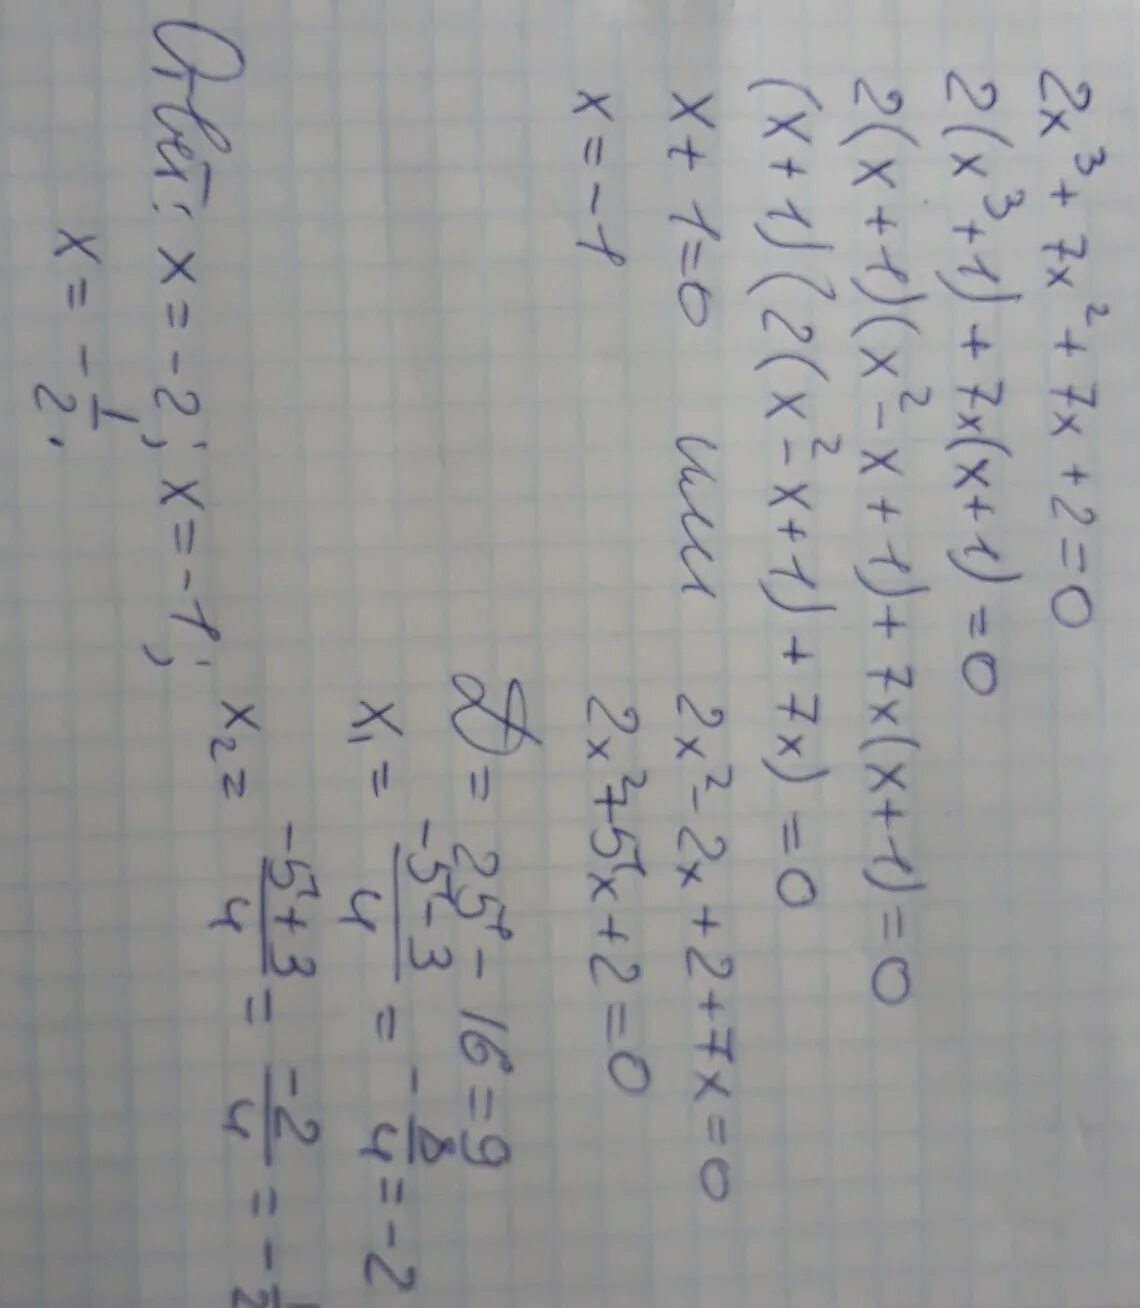 2x³ + 7x² + 7x + 2 = 0
2(x³ + 1) + 7x(x + 1) = 0
2(x + 1)(x² - x + 1) + 7x(x + 1) = 0
(x + 1)(2(x² - x + 1) + 7x) = 0
x + 1 = 0 или 2x² - 2x + 2 + 7x = 0
x = -1 2x² + 5x + 2 = 0
D = 25 - 16 = 9
x₁ = (-5 - 3)/4 = -8/4 = -2
x₂ = (-5 + 3)/4 = -2/4 = -1/2
Ответ: x = -2; x = -1;
x = -1/2.